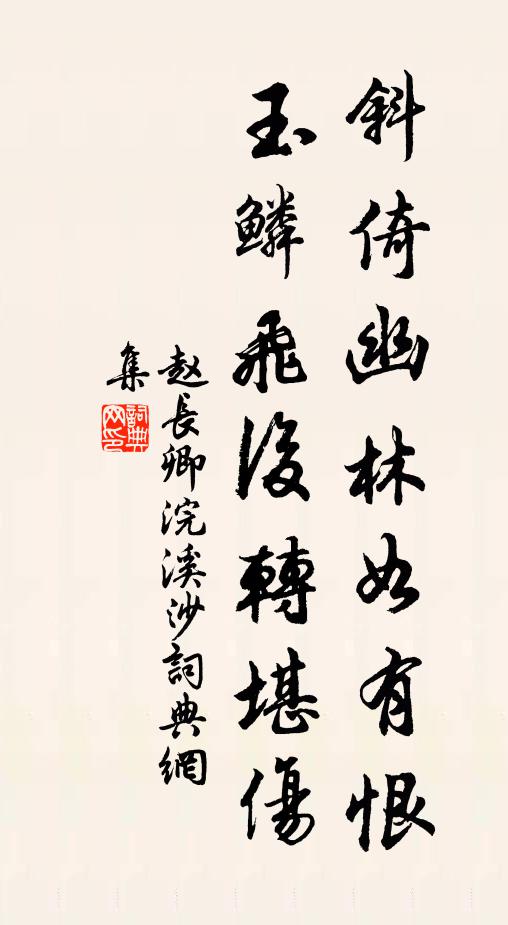 斜倚幽林如有恨
玉鱗飛後轉堪傷
赵長卿浣溪沙詞典網
集
詞典
网印